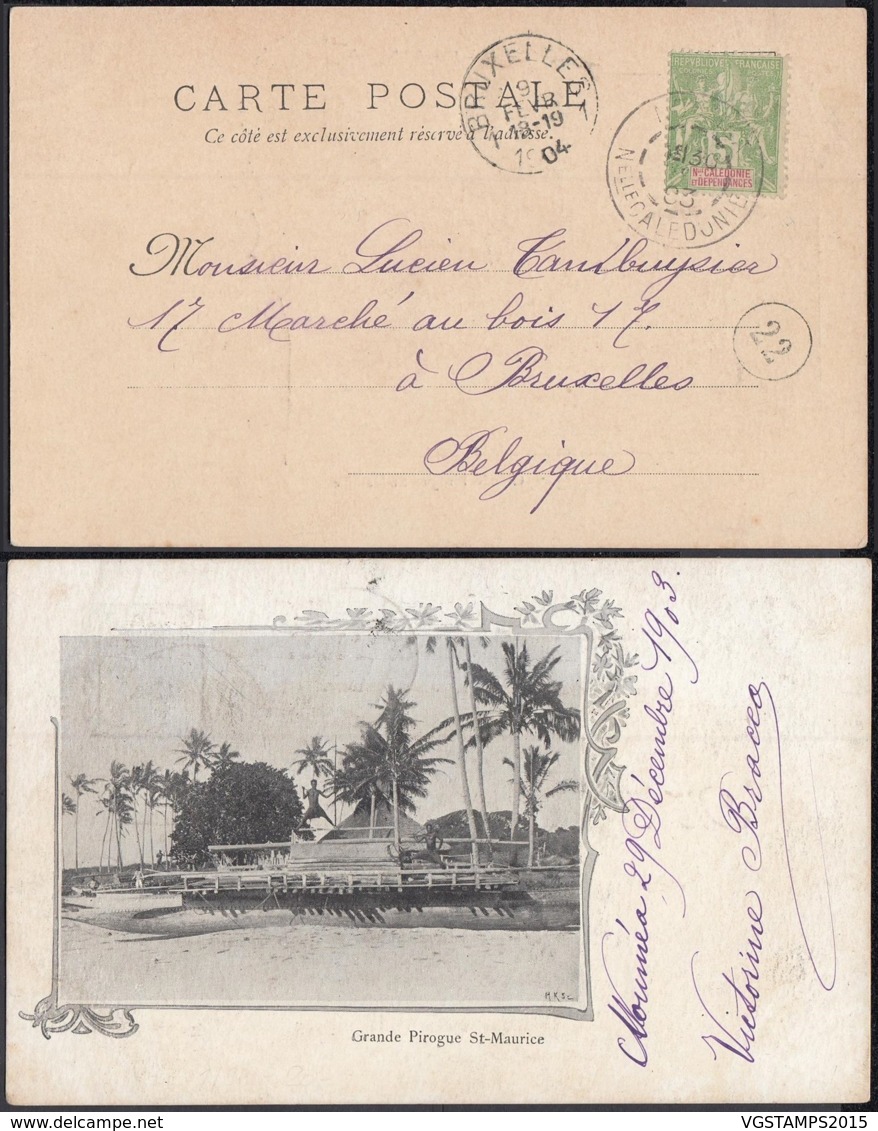 CARTE POSTALE
Ce côté est exclusivement réservé à l'adresse.
BRUXELLES 1
9
FEVR
18-19
1904
REPUBLIQUE FRANÇAISE
COLONIES POSTES
5
Nlle CALEDONIE
ET DÉPENDANCES
03
Nelle CALEDONIE
Monsieur Lucien Vandbuysier
17 Marché au bois 17.
à Bruxelles
Belgique
22
Nouméa 29 Décembre 1903.
Victorine Bracco
H.K&C
Grande Pirogue St-Maurice
VGSTAMPS2015